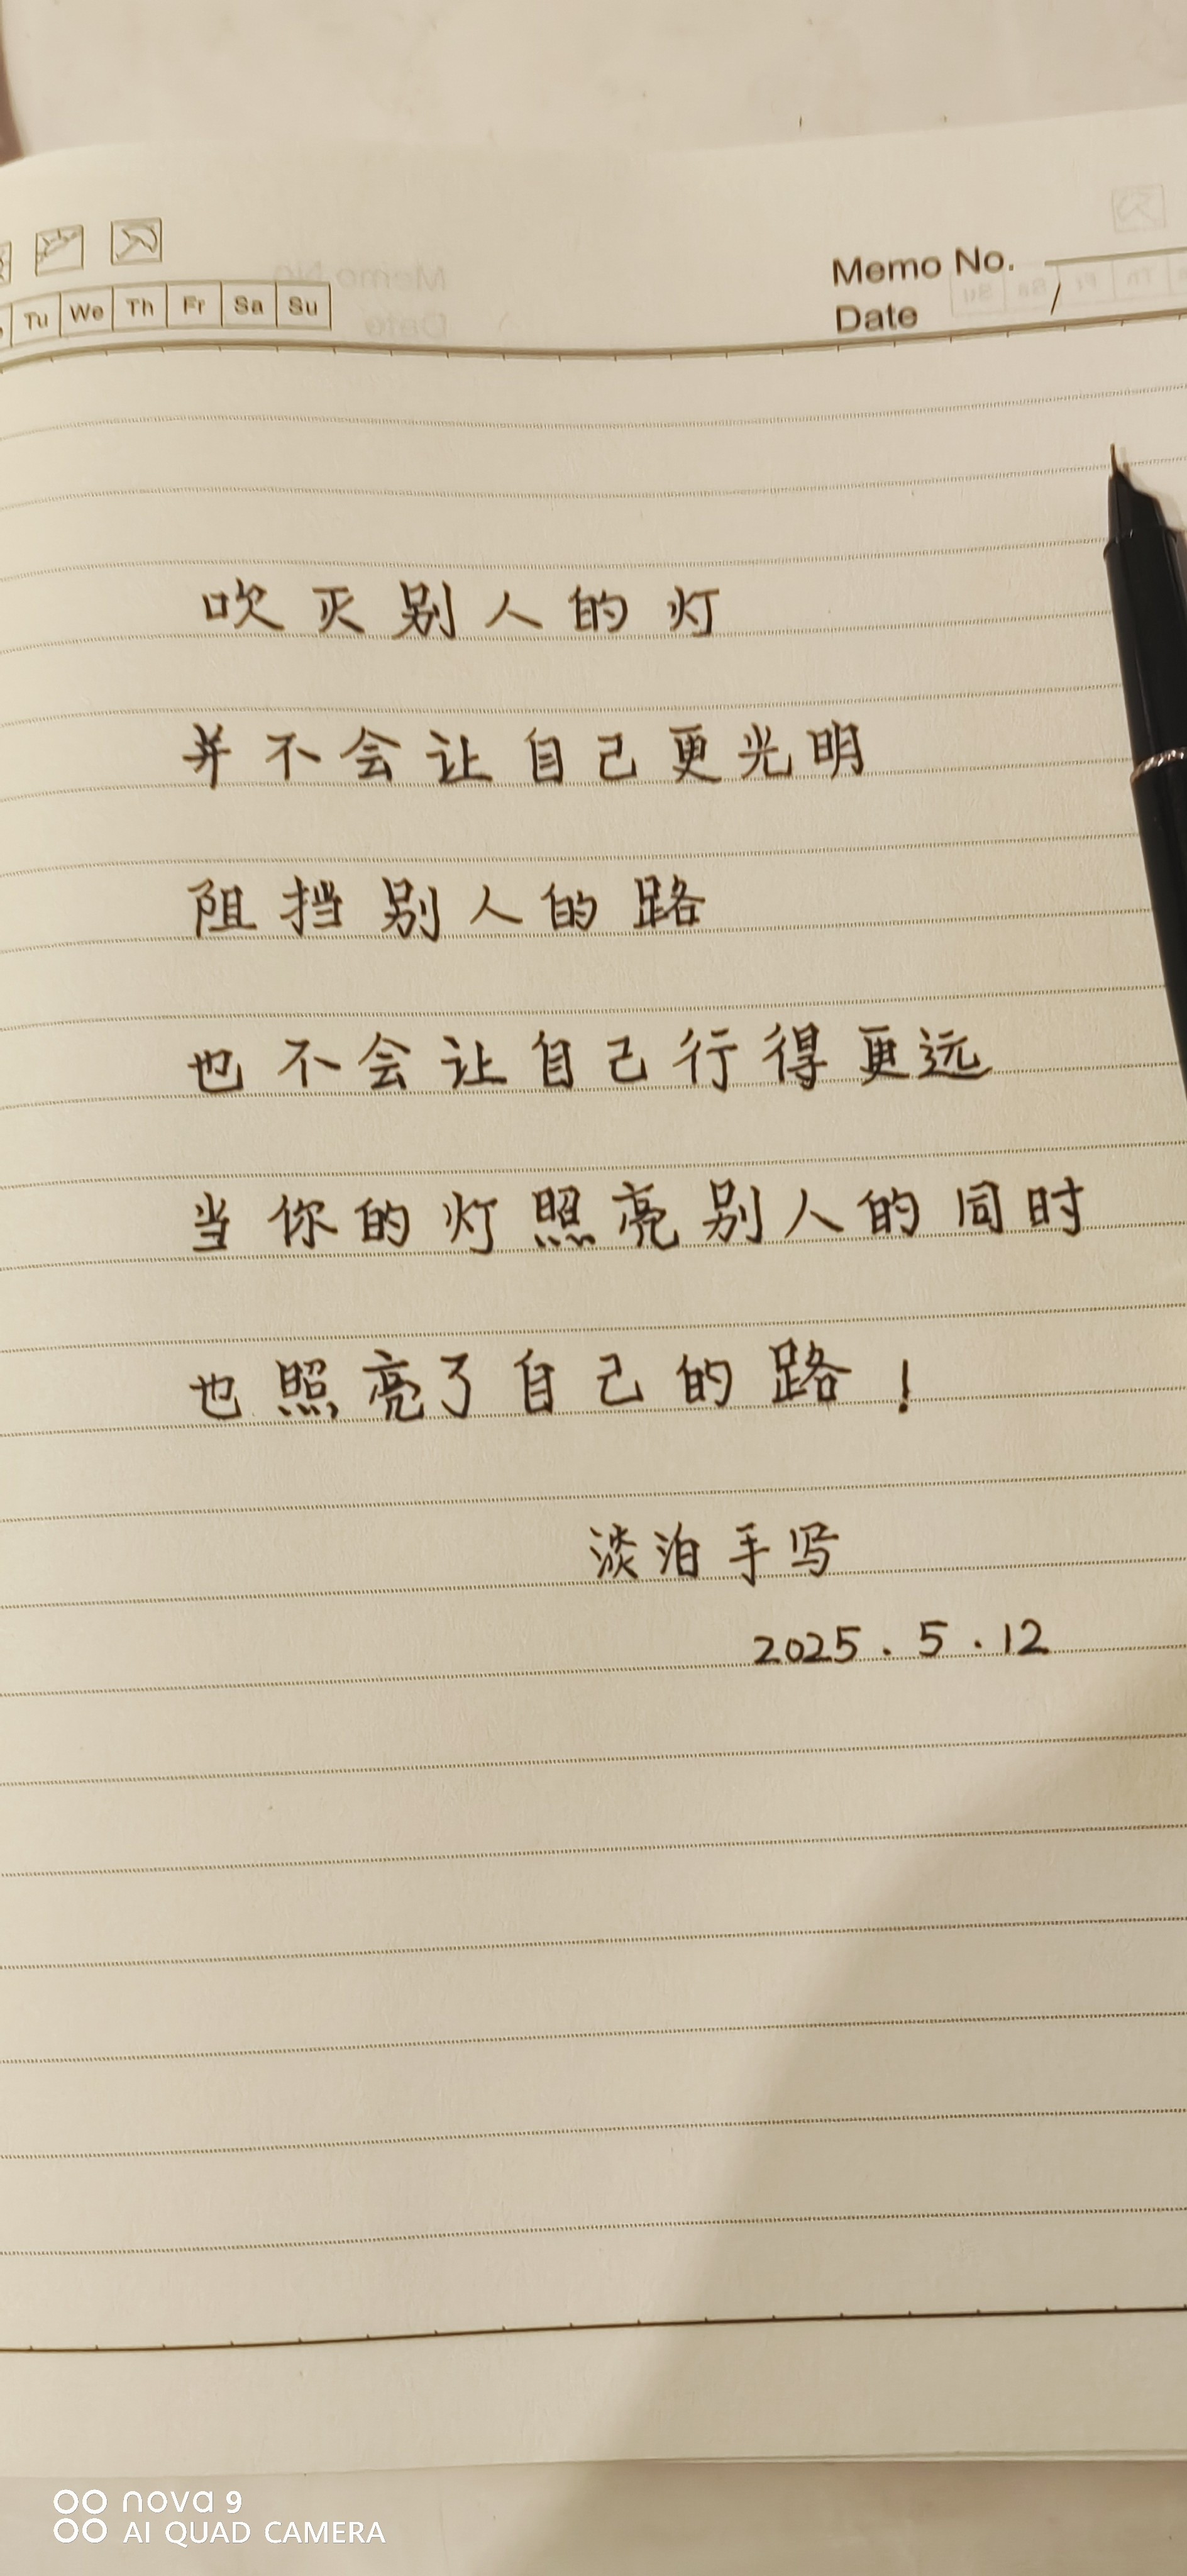 Memo No.
Tu We Th Fr Sa Su
Date /
吹灭别人的灯
并不会让自己更光明
阻挡别人的路
也不会让自己行得更远
当你的灯照亮别人的同时
也照亮了自己的路！
淡泊手写
2025.5.12
nova 9
AI QUAD CAMERA